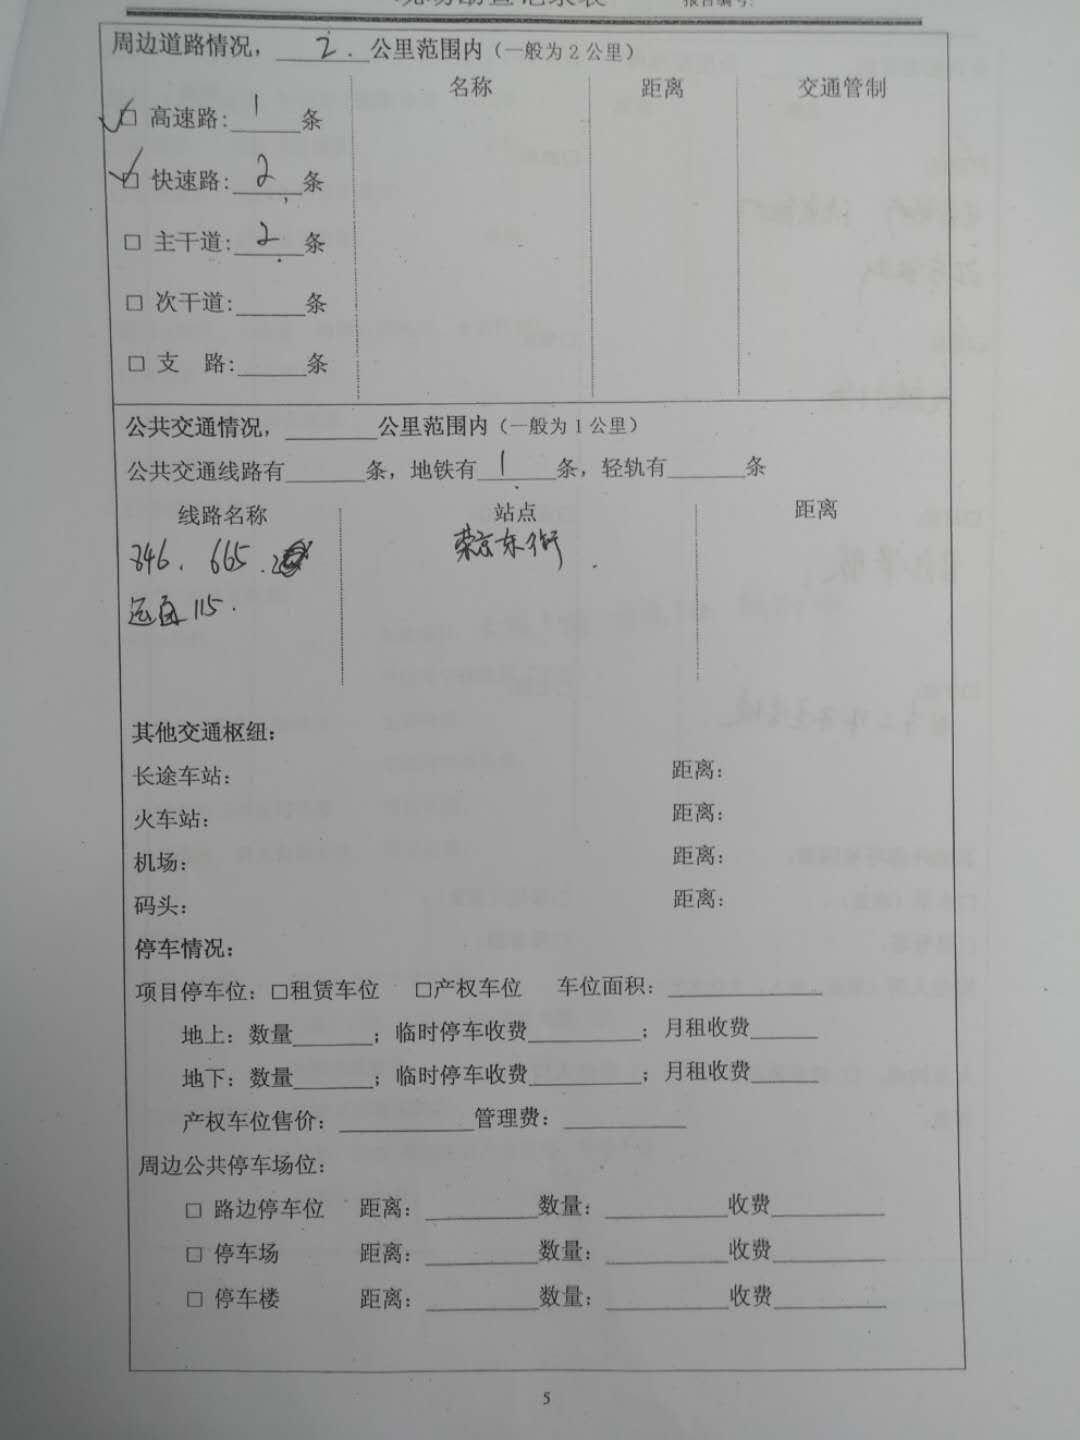 现场勘查记录表 报告编号:
周边道路情况，2.公里范围内（一般为2公里）
名称 距离 交通管制
☑ 高速路:1条
☑ 快速路:2条
□ 主干道:2条
□ 次干道:______条
□ 支 路:______条
公共交通情况，________公里范围内（一般为1公里）
公共交通线路有_______条，地铁有1条，轻轨有_______条
线路名称 站点 距离
846、665、 荣京东街
运通115.
其他交通枢纽：
长途车站： 距离：
火车站： 距离：
机场： 距离：
码头： 距离：
停车情况：
项目停车位：□租赁车位 □产权车位 车位面积：______________
地上：数量_______；临时停车收费__________；月租收费______
地下：数量_______；临时停车收费__________；月租收费______
产权车位售价：____________管理费：___________
周边公共停车场位：
□ 路边停车位 距离：__________数量：___________收费__________
□ 停车场 距离：__________数量：___________收费__________
□ 停车楼 距离：__________数量：___________收费__________
5